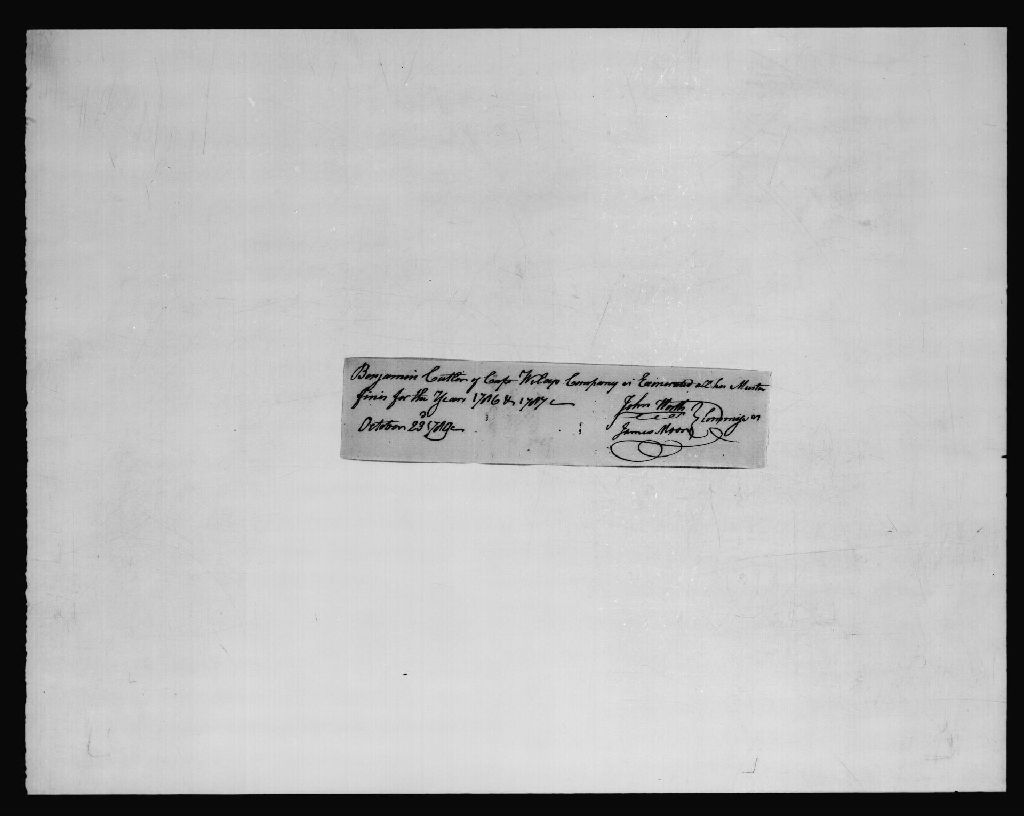 Benjamin Cutler of Capt Wilcoxs Company is Exonerated all his Muster
fines for the Years 1786 & 1787
John Worth
James Moore } Commiss rs
October 23d